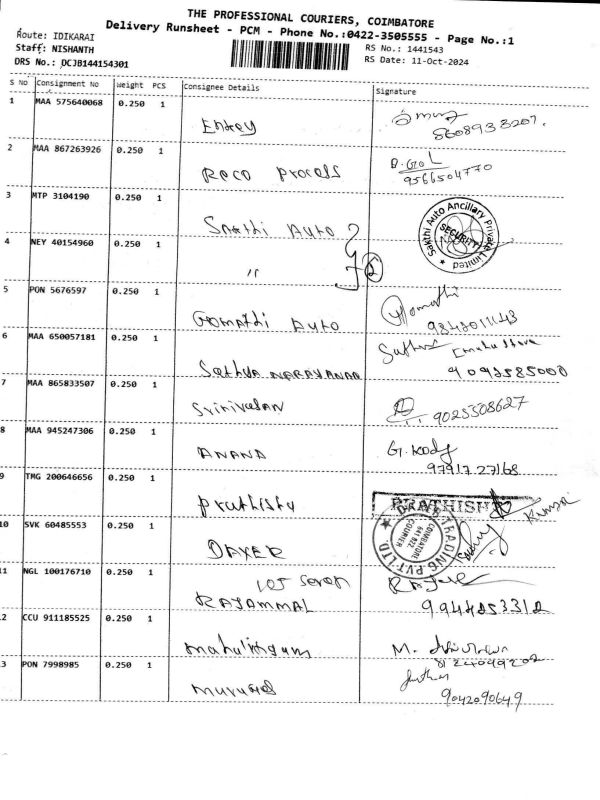 THE PROFESSIONAL COURIERS, COIMBATORE
Delivery Runsheet - PCM - Phone No.:0422-3505555 - Page No.:1
Route: IDIKARAI
RS No.: 1441543
Staff: NISHANTH
RS Date: 11-Oct-2024
DRS No.: DCJB144154301
S No Consignment No Weight PCS Consignee Details Signature
1 MAA 575640068 0.250 1
5608933207.
2 MAA 867263926 0.250 1
Reco process
9566504770
3 MTP 3104190 0.250 1
Sakthi Auto
Sakthi Auto Ancillary Private Limited
SECURITY
4 NEY 40154960 0.250 1
"
5 PON 5676597 0.250 1
Gomathi Auto
Gomathi
6 MAA 650057181 0.250 1
Sathya NARAYANAN
9092585000
7 MAA 865833507 0.250 1
Srinivasan
9025508627
8 MAA 945247306 0.250 1
ANAND
97917 27168
9 TMG 200646656 0.250 1
Prathista
Kumar
10 SVK 60485553 0.250 1
TRADING PVT LTD
COIMBATORE
641 022
COURIER
11 NGL 100176710 0.250 1
RAJAMMAL
9944253312
2 CCU 911185525 0.250 1
mahulingam
M.
8124049202
3 PON 7998985 0.250 1
9042090649